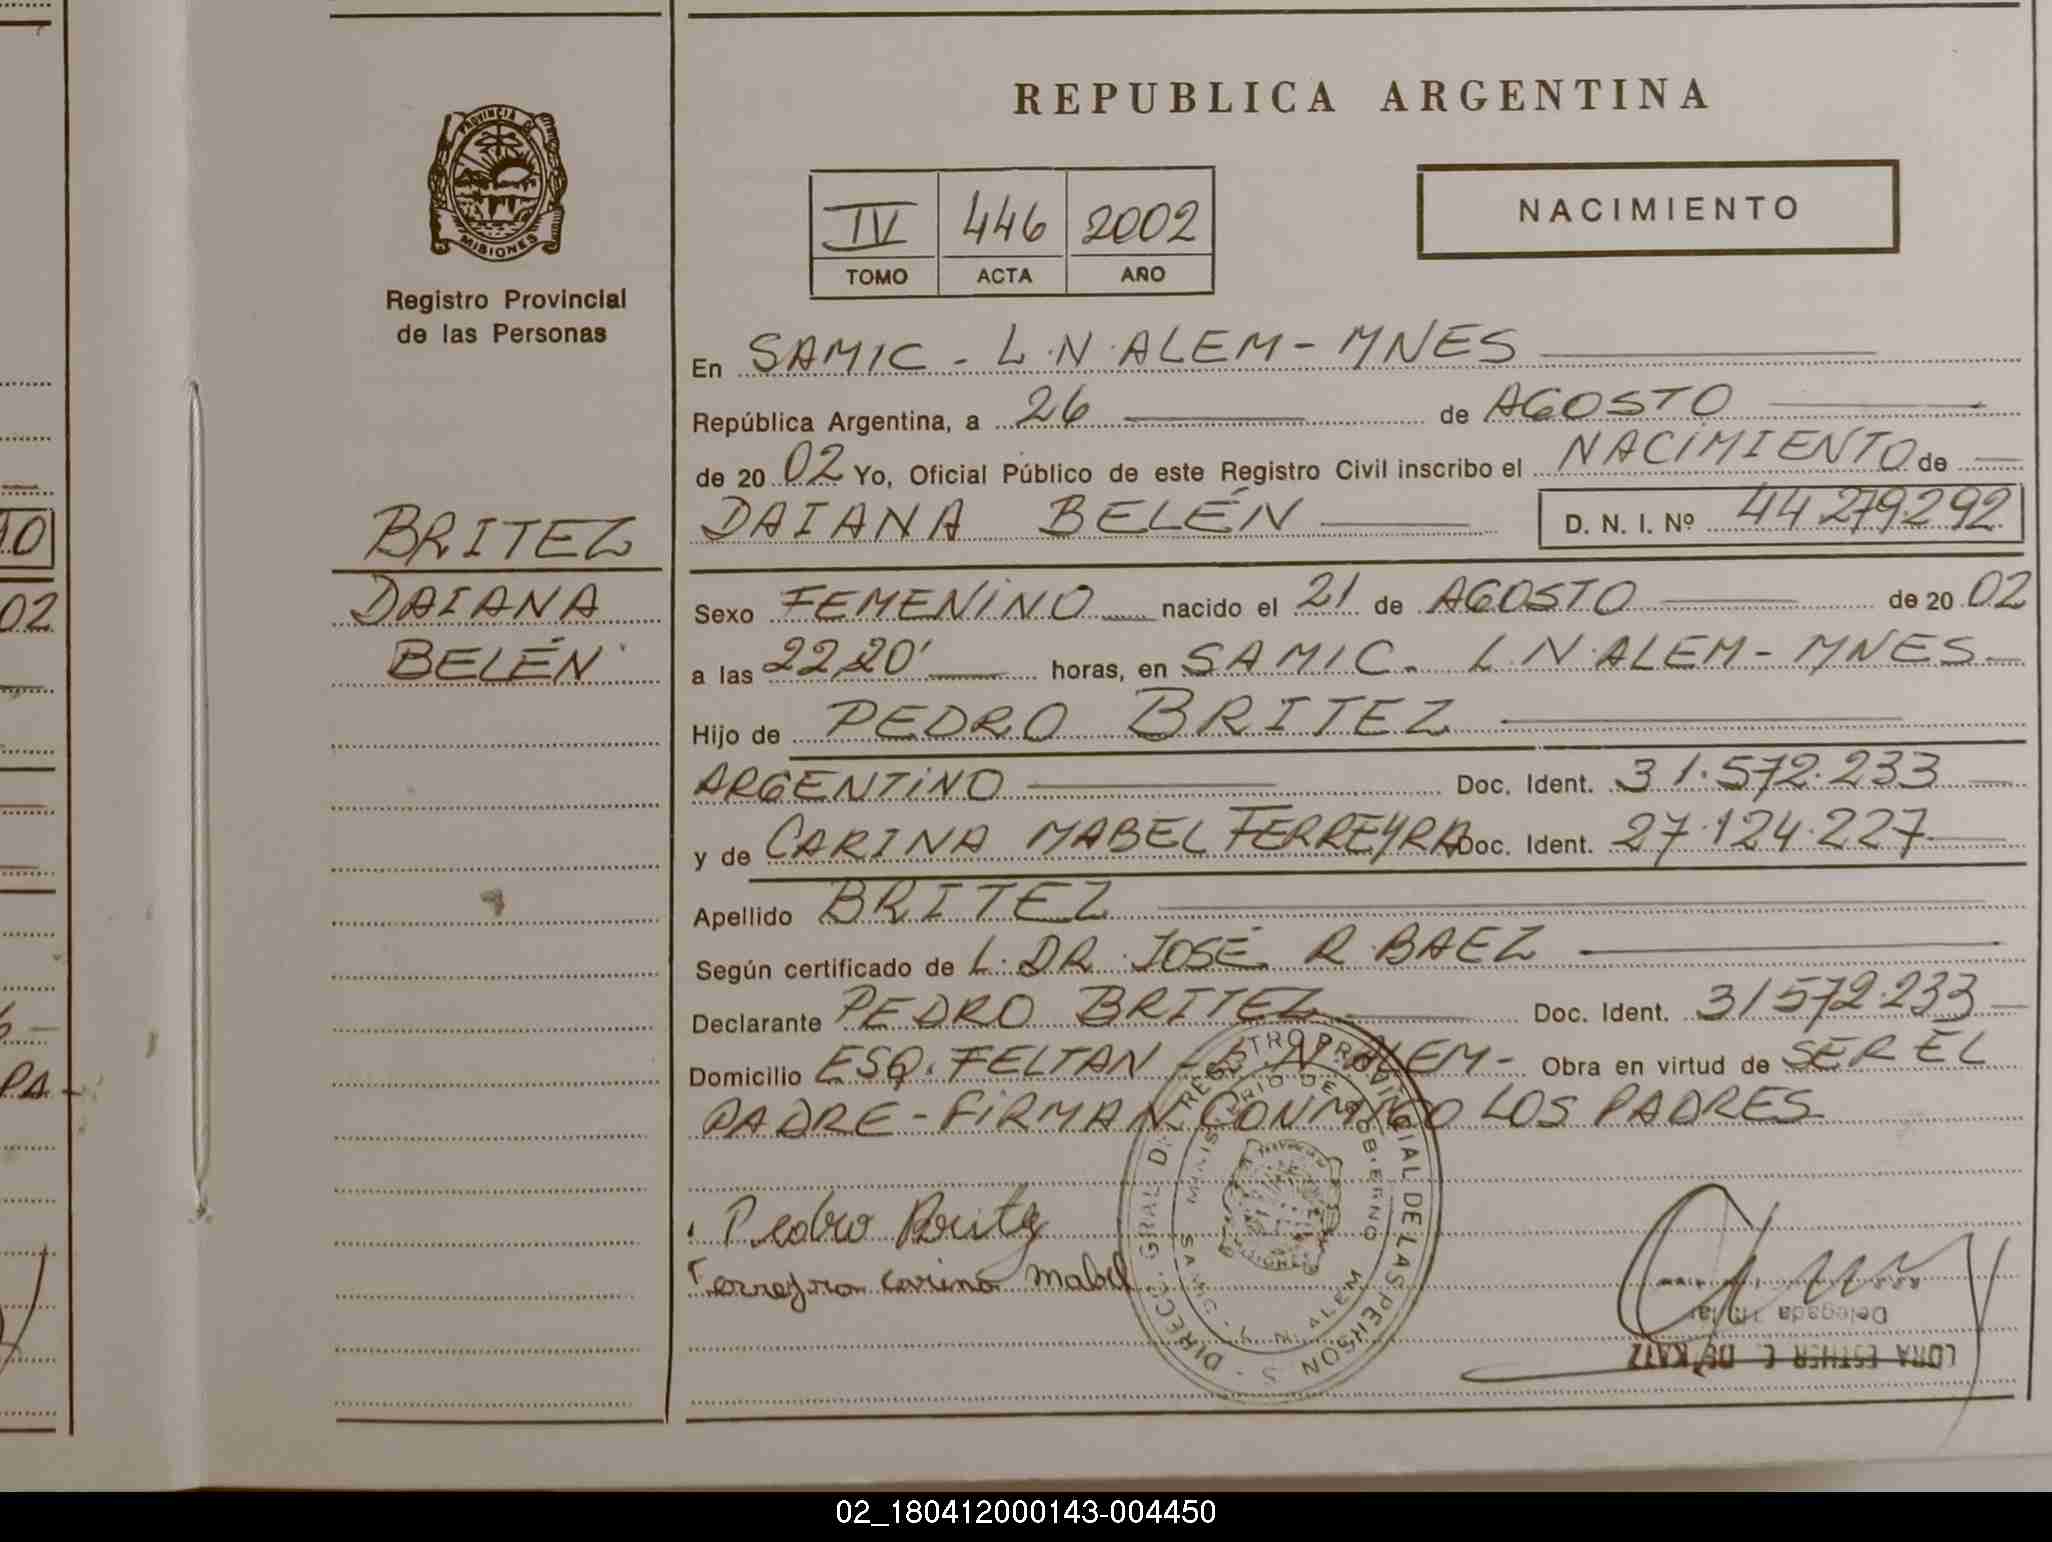 REPUBLICA ARGENTINA
PROVINCIA DE
MISIONES
Registro Provincial
de las Personas
IV 446 2002
TOMO ACTA AÑO
NACIMIENTO
En SAMIC - L.N.ALEM - MNES
República Argentina, a 26 de AGOSTO
de 20 02 Yo, Oficial Público de este Registro Civil inscribo el NACIMIENTO de
DAIANA BELÉN D. N. I. Nº 44279.292
BRITEZ
DAIANA
BELÉN
Sexo FEMENINO nacido el 21 de AGOSTO de 20 02
a las 22,20' horas, en SAMIC. L.N.ALEM - MNES
Hijo de PEDRO BRITEZ
ARGENTINO Doc. Ident. 31.572.233
y de CARINA MABEL FERREYRA Doc. Ident. 27.124.227
Apellido BRITEZ
Según certificado de L. DR. JOSÉ R. BAEZ
Declarante PEDRO BRITEZ Doc. Ident. 31572.233
Domicilio ESQ. FELTAN - L.N.ALEM - Obra en virtud de SER EL
PADRE - FIRMAN CONMIGO LOS PADRES
Pedro Britez
Ferreyra Carina Mabel
DIRECC. GRAL. DEL REGISTRO PROVINCIAL DE LAS PERSONAS
MINISTERIO DE GOBIERNO
SAMIC - L. N. ALEM
Delegada Titular
ESTHER DE KATZ
10
02
PA
02_180412000143-004450